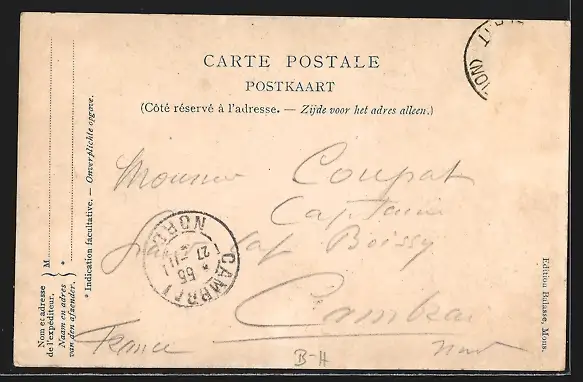 CARTE POSTALE
POSTKAART
(Côté réservé à l'adresse. — Zijde voor het adres alleen.)
Monsieur Coupat
Capitaine
Boissy
Cambrai
Nord
France
B-H
CAMBRAI
NORD
27
Nom et adresse
de l'expéditeur.
Naam en adres
van den afzender.
M
* Indication facultative. — Onverplichte opgave.
Edition Balasse, Mons.